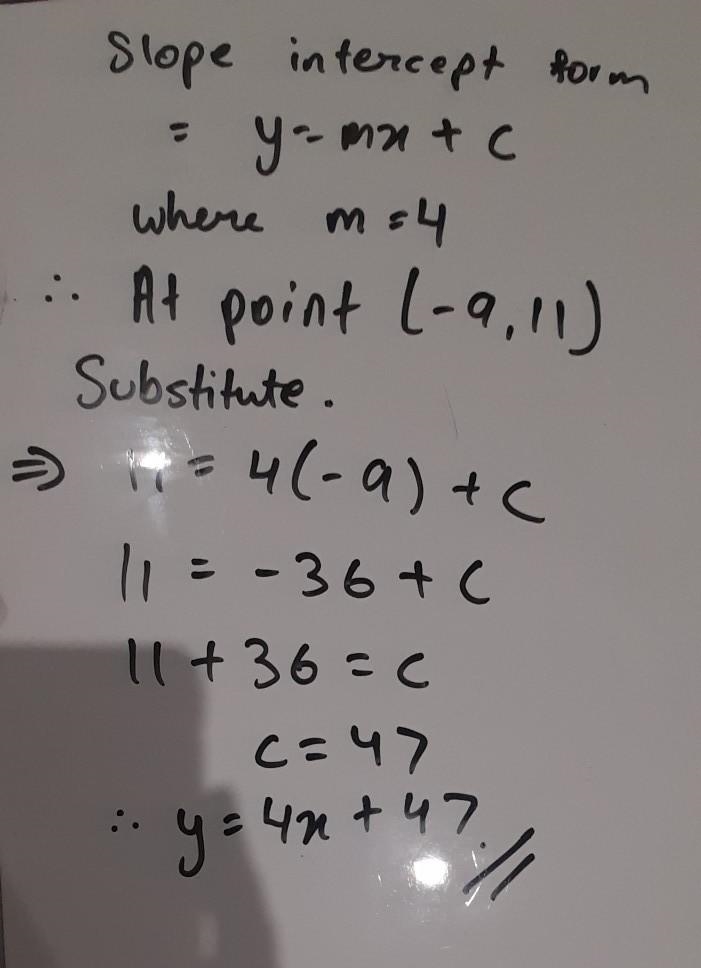 Slope intercept form
= y = mx + c
where m = 4
∴ At point (-9, 11)
Substitute.
⇒ 11 = 4(-9) + c
11 = -36 + c
11 + 36 = c
c = 47
∴ y = 4x + 47 //